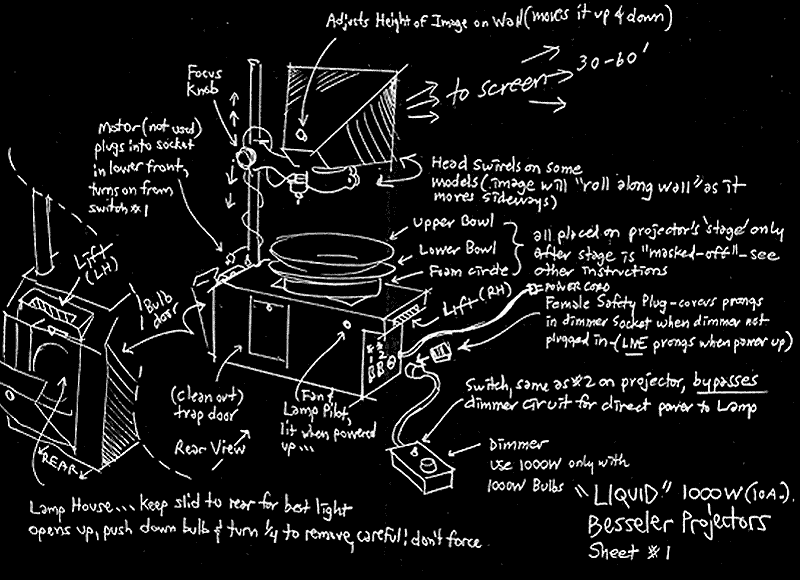 Adjusts Height of Image on Wall (moves it up & down)
Focus
Knob
to screen
30-60'
Motor (not used)
plugs into socket
in lower front,
turns on from
switch #1
Head swivels on some
models (image will "roll along wall" as it
moves sideways)
Upper Bowl
Lower Bowl
Foam circle
all placed on projector's 'stage' only
After stage is "masked-off" - see
other instructions
Lift
(LH)
Bulb
door
Lift (RH)
POWER CORD
Female Safety Plug-covers prongs
in dimmer socket when dimmer not
plugged in-(LIVE prongs when power up)
#1
#2
(clean out)
trap door
Rear View
(Fan &
Lamp Pilot,
lit when powered
up...
Switch, same as #2 on projector, bypasses
dimmer circuit for direct power to Lamp
Dimmer
use 1000W only with
1000W Bulbs
REAR
Lamp House... keep slid to rear for best light
opens up, push down bulb & turn 1/4 to remove, careful! don't force
"LIQUID" 1000W (10A.)
Besseler Projectors
Sheet #1